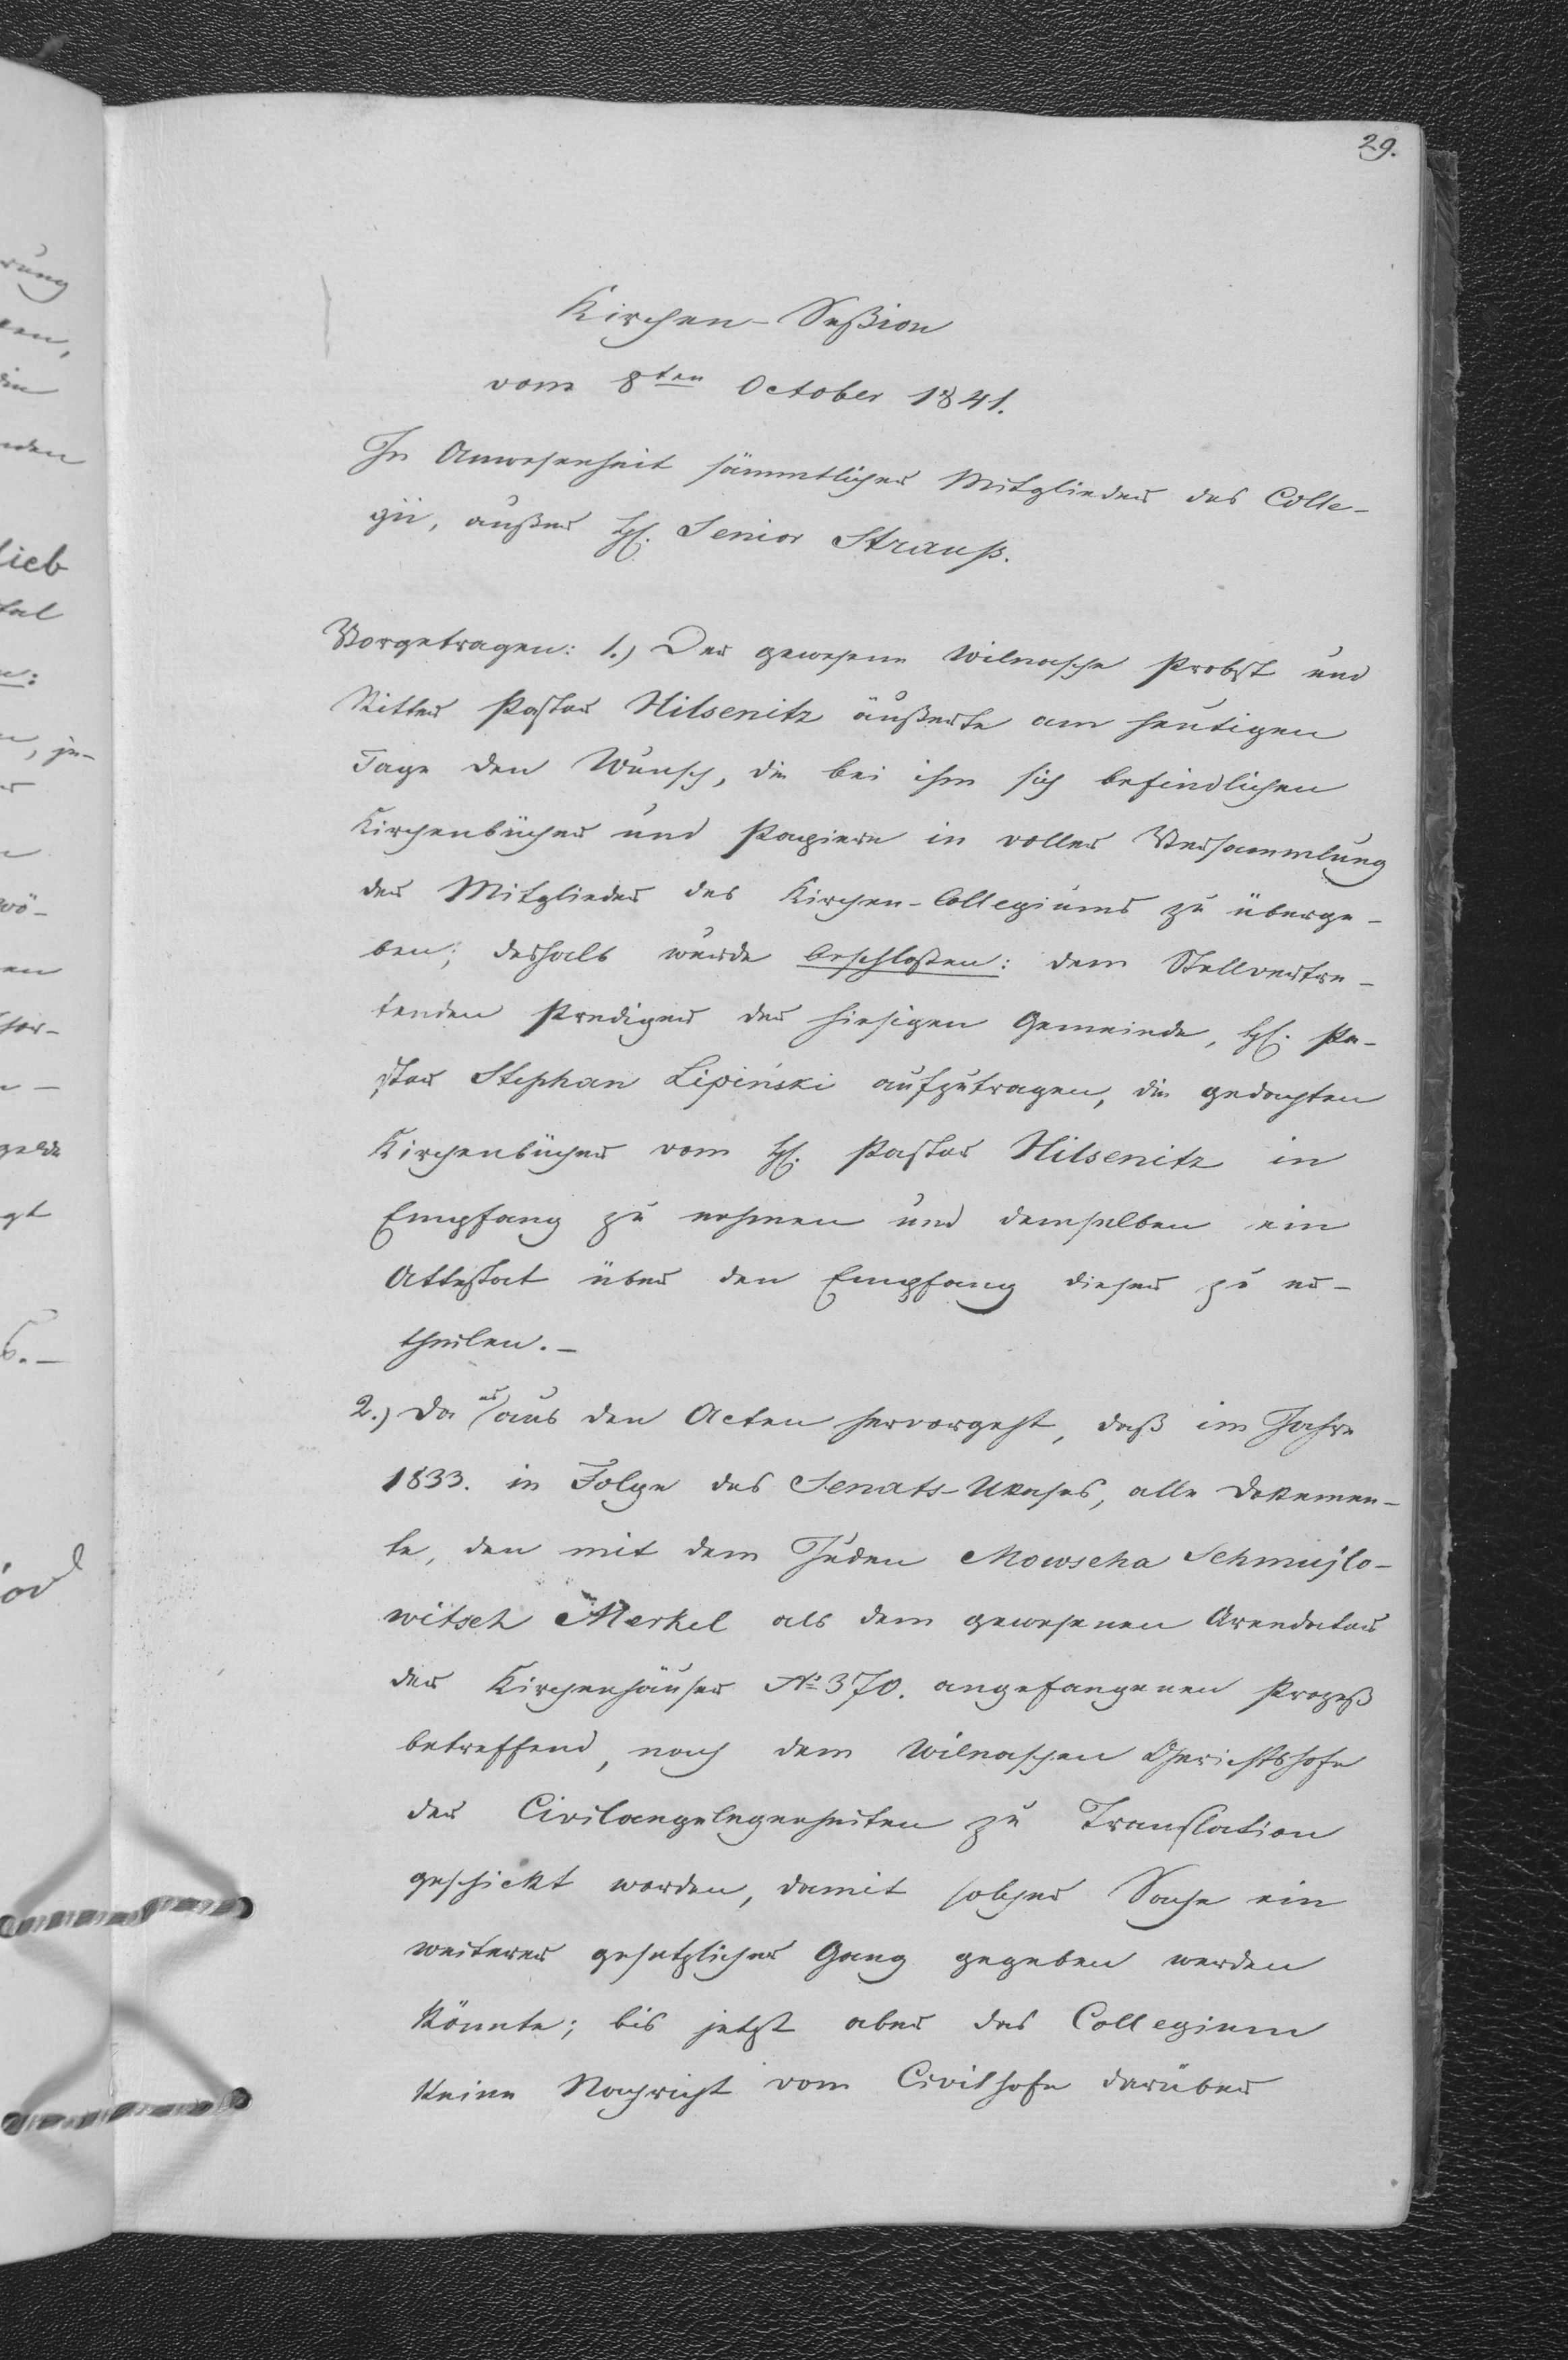 29.
Kirchen-Seßion
vom 8ten October 1841.
In Anwesenheit sämmtlicher Mitglieder des Colle-
gii, außer H. Senior Strauß.
Vorgetragen: 1.) Der gewesene Wilnasche Probst und
Ritter Pastor Hilsenitz äußerte am heutigen
Tage den Wunsch, die bei ihm sich befindlichen
Kirchenbücher und Papiere in voller Versammlung
der Mitglieder des Kirchen-Collegiums zu überge-
ben; deshalb wurde beschloßen: dem Stellvertre-
tenden Prediger der hiesigen Gemeinde, H. Pa-
stor Stephan Lipiński aufzutragen, die gedachten
Kirchenbücher vom H. Pastor Hilsenitz in
Empfang zu nehmen und demselben ein
Attestat über den Empfang dieser zu er-
theilen.-
2.) Da es aus den Acten hervorgeht, daß im Jahre
1833. in Folge des Senats-Ukases, alle Dokumen-
te, den mit dem Juden Mowscha Schmujlo-
witsch Merkel als dem gewesenen Arendator
der Kirchenhäuser No 370. angefangenen Prozeß
betreffend, nach dem Wilnaschen Gerichtshofe
der Civilangelegenheiten zu Translation
geschickt worden, damit solcher Sache ein
weiterer gesetzlicher Gang gegeben werden
könnte; bis jetzt aber das Collegium
keine Nachricht vom Civilhofe darüber